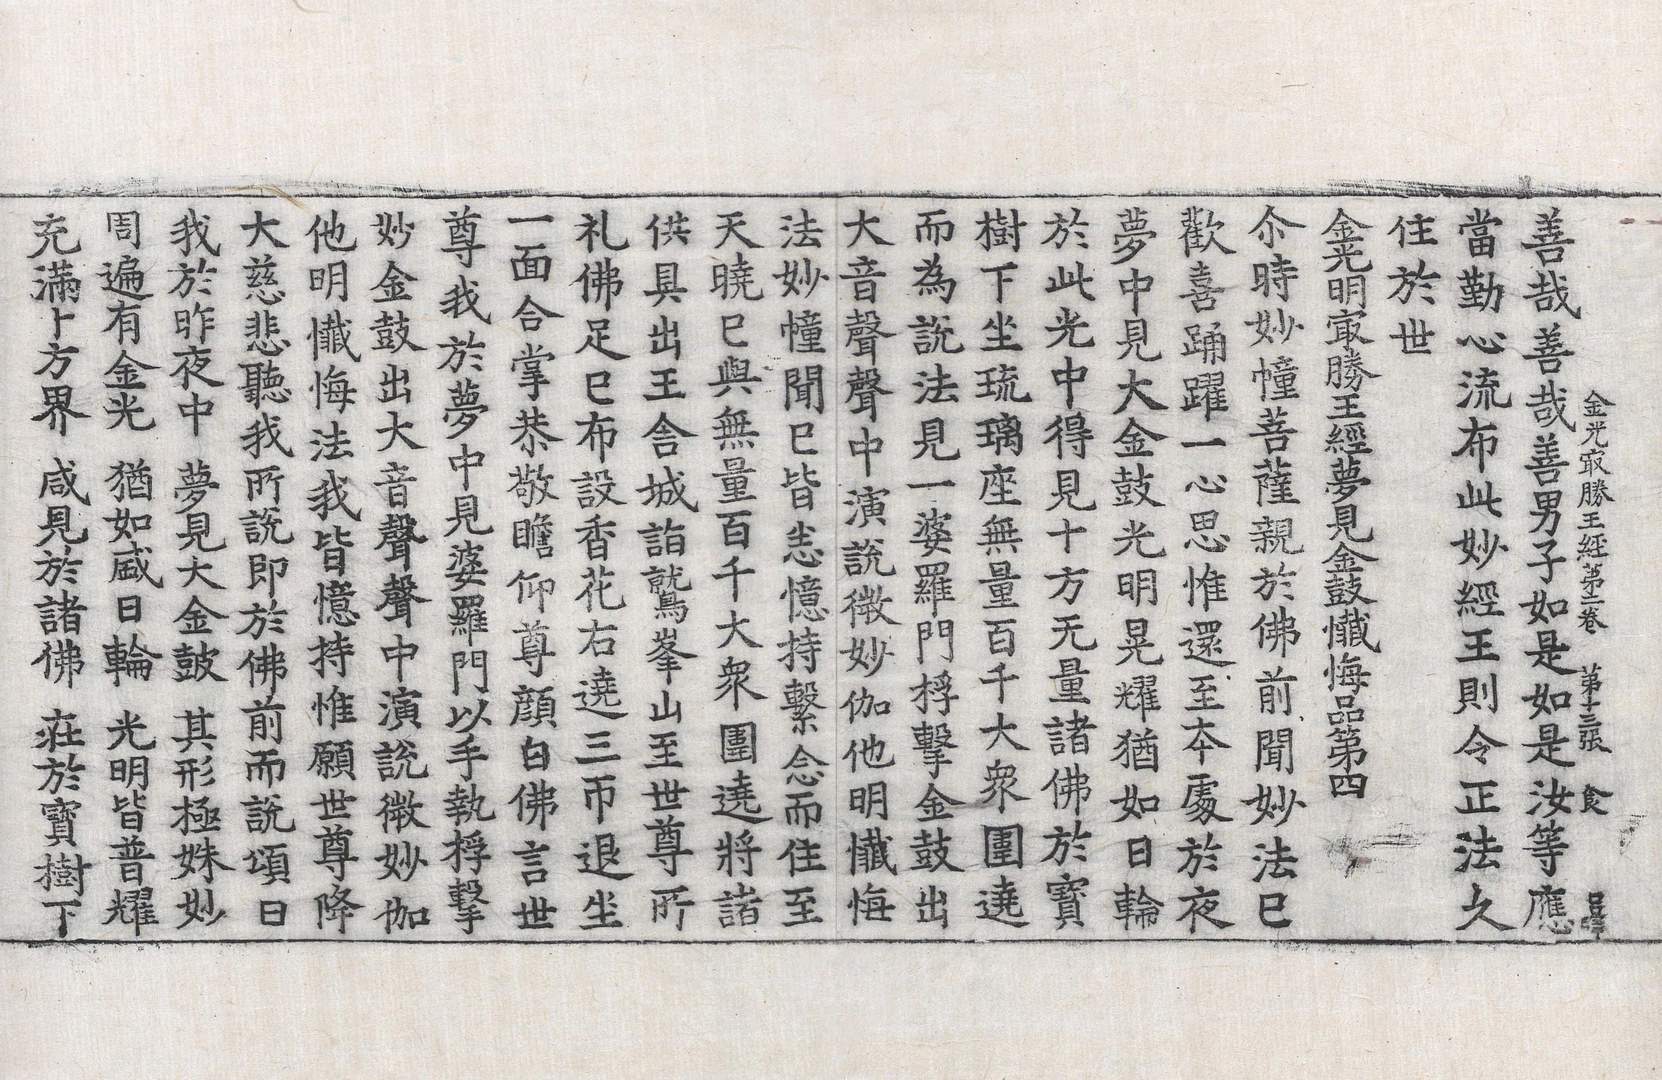 金光㝡勝王經第二卷　第十三張　食
善哉善哉善男子如是如是汝等應
當勤心流布此妙經王則令正法久
住於世
金光明㝡勝王經夢見金鼓懺悔品第四
尒時妙幢菩薩親於佛前聞妙法已
歡喜踊躍一心思惟還至本處於夜
夢中見大金鼓光明晃耀猶如日輪
於此光中得見十方无量諸佛於寶
樹下坐琉璃座無量百千大眾圍遶
而為說法見一婆羅門桴擊金鼓出
大音聲聲中演說微妙伽他明懺悔
法妙幢聞已皆悉憶持繫念而住至
天曉已與無量百千大眾圍遶將諸
供具出王舍城詣鷲峯山至世尊所
礼佛足已布設香花右遶三帀退坐
一面合掌恭敬瞻仰尊顔白佛言世
尊我於夢中見婆羅門以手執桴擊
妙金鼓出大音聲聲中演說微妙伽
他明懺悔法我皆憶持惟願世尊降
大慈悲聽我所說即於佛前而說頌曰
我於昨夜中　夢見大金鼓　其形極姝妙
周遍有金光　猶如盛日輪　光明皆普耀
充滿十方界　咸見於諸佛　在於寶樹下